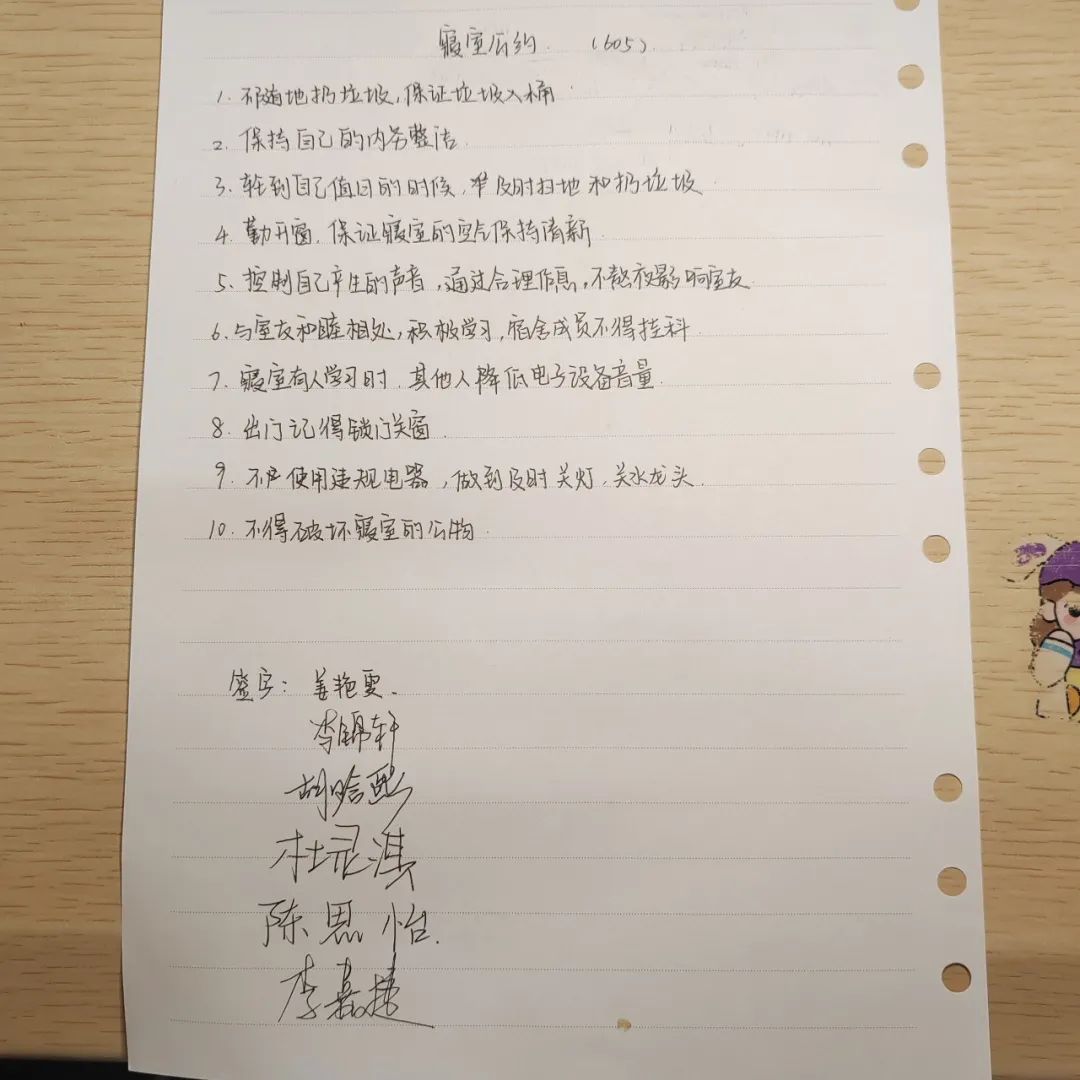 寝室公约 (605)
1. 不随地扔垃圾,保证垃圾入桶
2. 保持自己的内务整洁.
3. 轮到自己值日的时候,及时扫地和扔垃圾
4. 勤开窗,保证寝室的空气保持清新
5. 控制自己产生的声音,通过合理作息,不熬夜影响室友
6. 与室友和睦相处,积极学习,宿舍成员不得挂科
7. 寝室有人学习时,其他人降低电子设备音量
8. 出门记得锁门关窗
9. 不使用违规电器,做到及时关灯,关水龙头.
10. 不得破坏寝室的公物.
签字: 姜艳雯.
李锦轩
胡晗熙
杜灵淇
陈思怡.
李嘉捷